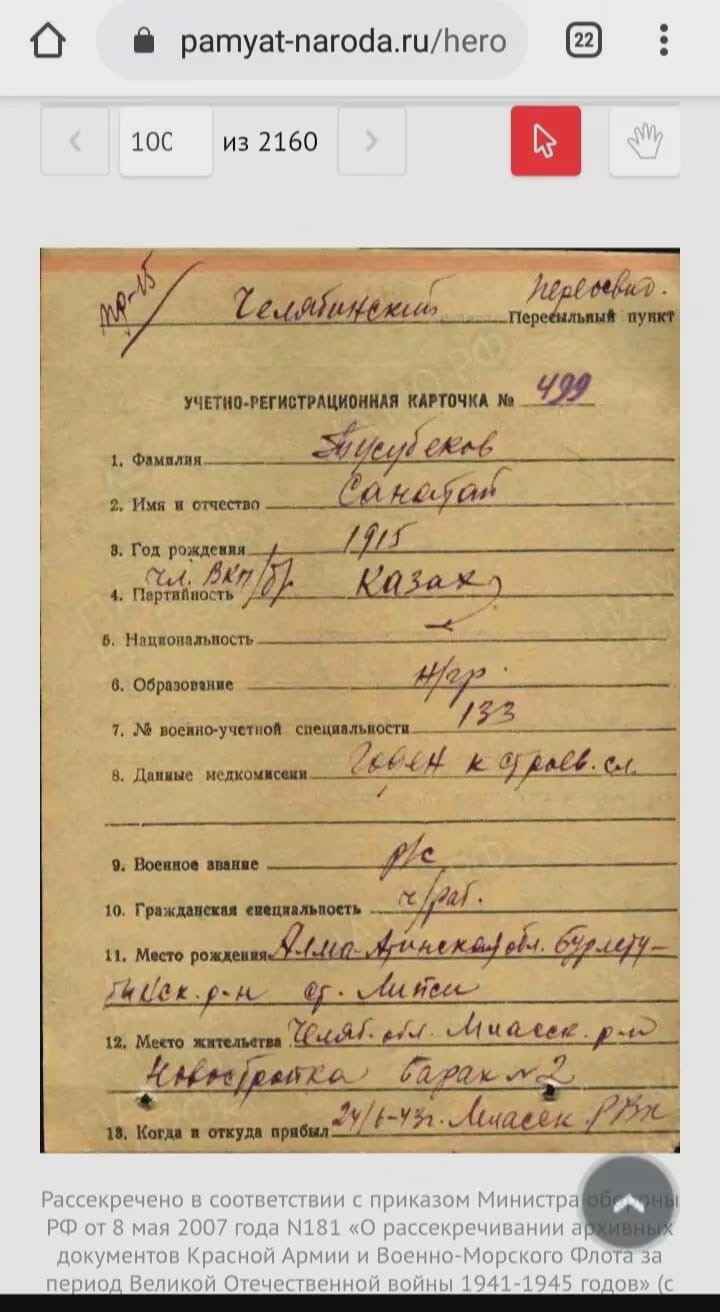 pamyat-naroda.ru/hero 22
100 из 2160
пр-15 Челябинский пересвид.
Пересыльный пункт
УЧЕТНО-РЕГИСТРАЦИОННАЯ КАРТОЧКА № 499
1. Фамилия Тусубеков
2. Имя и отчество Санатай
3. Год рождения 1915
чл. ВКП/б/. Казах
4. Партийность
5. Национальность
6. Образование н/гр.
7. № военно-учетной специальности 133
8. Данные медкомиссии Годен к строев. сл.
9. Военное звание р/с
10. Гражданская специальность ч/раб.
11. Место рождения Алма-Атинская обл.
р-н ст.
12. Место жительства Челяб. обл. Миасск. р-н
Новостройка барак № 2
13. Когда и откуда прибыл 24/6-43г. Миасск. РВК
Рассекречено в соответствии с приказом Министра обороны
РФ от 8 мая 2007 года N181 «О рассекречивании архивных
документов Красной Армии и Военно-Морского Флота за
период Великой Отечественной войны 1941-1945 годов» (с